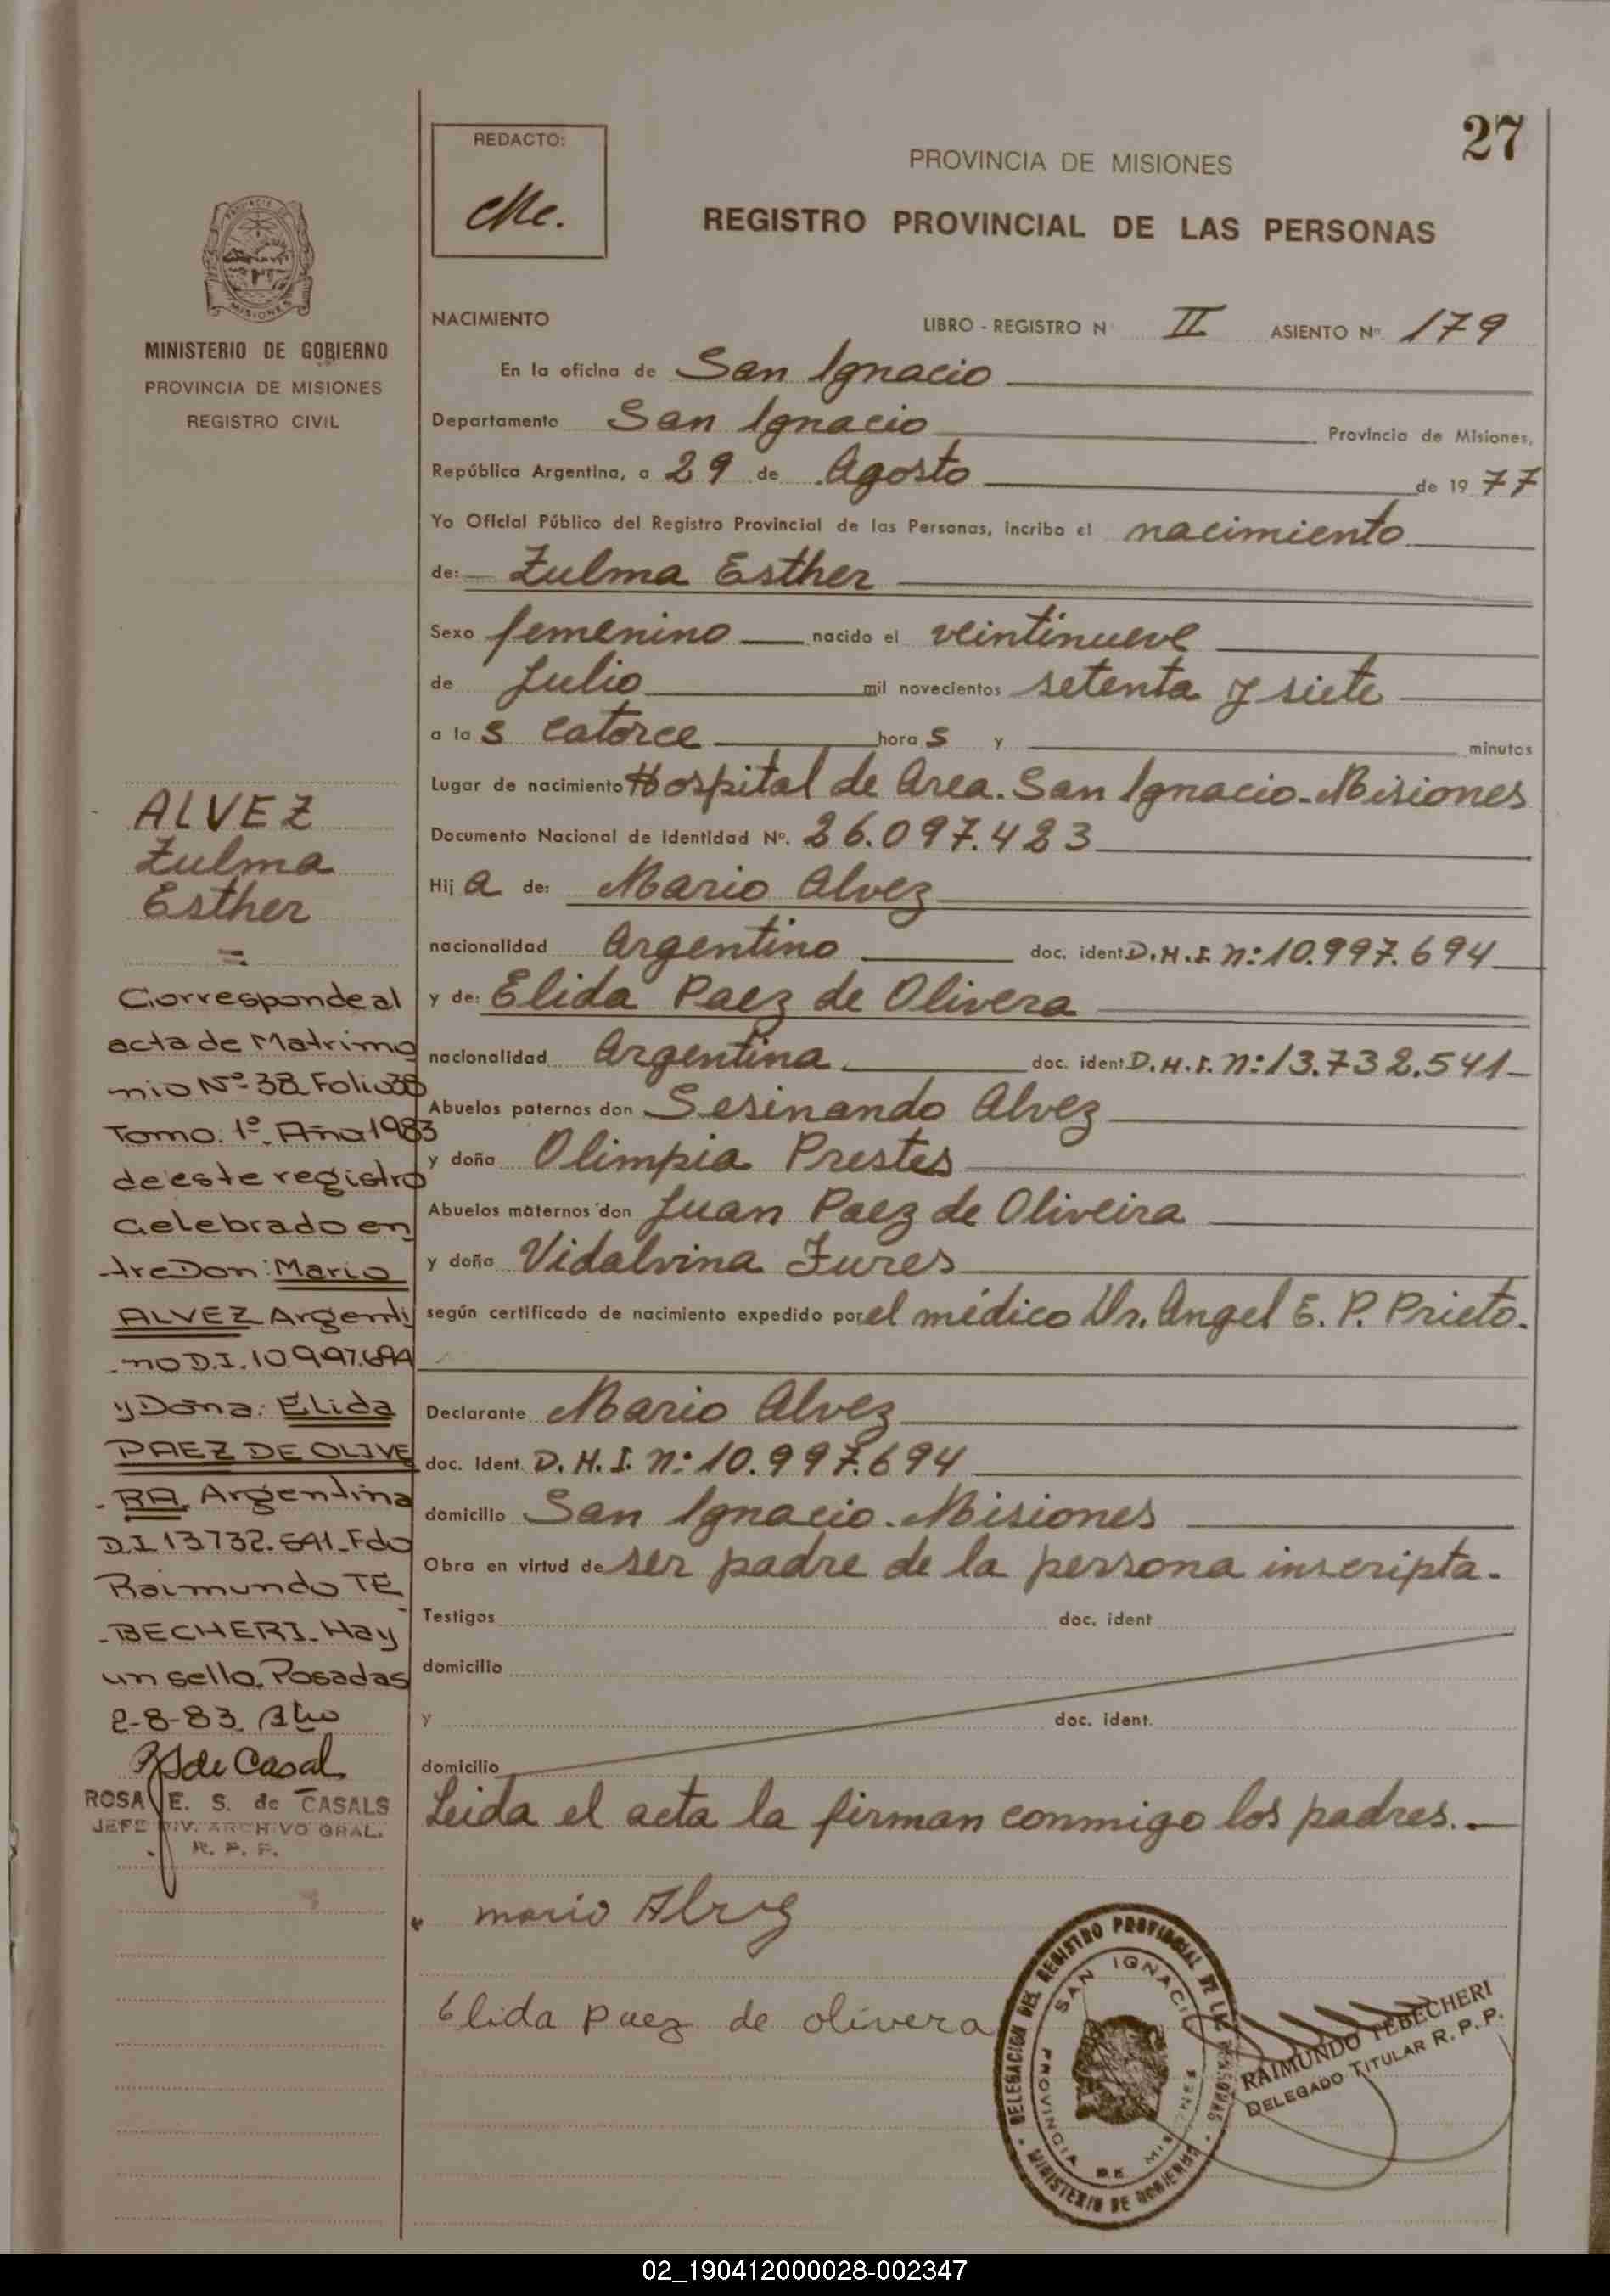 27
REDACTO:
PROVINCIA DE MISIONES
REGISTRO PROVINCIAL DE LAS PERSONAS
MINISTERIO DE GOBIERNO
PROVINCIA DE MISIONES
REGISTRO CIVIL
NACIMIENTO LIBRO - REGISTRO N II ASIENTO Nº 179
En la oficina de San Ignacio
Departamento San Ignacio Provincia de Misiones,
República Argentina, a 29 de Agosto de 1977
Yo Oficial Público del Registro Provincial de las Personas, incribo el nacimiento
de: Zulma Esther
Sexo femenino nacido el veintinueve
de Julio mil novecientos setenta y siete
a las catorce horas y minutos
Lugar de nacimiento Hospital de Area. San Ignacio - Misiones
Documento Nacional de Identidad Nº. 26.097.423
Hija de: Mario Alvez
nacionalidad Argentino doc. ident D.N.I. Nº: 10.997.694
y de: Elida Paez de Olivera
nacionalidad Argentina doc. ident D.N.I. Nº: 13.732.541
Abuelos paternos don Sesinando Alvez
y doña Olimpia Prestes
Abuelos maternos don Juan Paez de Oliveira
y doña Vidalvina Fures
según certificado de nacimiento expedido por el médico Dr. Angel E. P. Prieto.
Declarante Mario Alvez
doc. Ident. D.N.I. Nº: 10.997.694
domicilio San Ignacio. Misiones
Obra en virtud de ser padre de la persona inscripta.
Testigos doc. ident
domicilio
y doc. ident.
domicilio
Leida el acta la firman conmigo los padres. -
mario Alvez
Elida paez de olivera
ALVEZ
Zulma
Esther
=
Corresponde al
acta de Matrimo
nio Nº 38 Folio 38
Tomo. 1º. Año 1983
de este registro
Celebrado en
tre Don: Mario
ALVEZ Argenti
no D.I. 10.997.694
y Doña: Elida
PAEZ DE OLIVE
RA. Argentina
D.I 13732.541. Fdo
Raimundo TE
BECHERI. Hay
un sello. Posadas
2-8-83
R S de Casal
ROSA E. S. de CASALS
JEFE DIV. ARCHIVO GRAL.
R. P. P.
DELEGACION DEL REGISTRO PROVINCIAL DE LAS PERSONAS
MINISTERIO DE GOBIERNO
SAN IGNACIO
PROVINCIA DE MISIONES
RAIMUNDO TEBECHERI
DELEGADO TITULAR R. P. P.
02_190412000028-002347